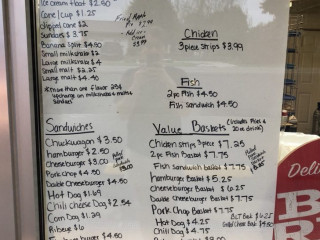 Ice cream float $2.50
Cone/cup $1.25
dipped cone $2
Sundaes $3.75
Banana Split $4.50
Small milkshake $2
Large milkshake $4
Small malt $2.25
Large malt $4.50
*more than one flavor 25¢
upcharge on milkshakes + malts +
sundaes
Chicken
3 piece strips $3.99
Fish
2pc Fish $4.50
Fish sandwich $4.50
Sandwiches
Chuckwagon $3.50
hamburger $2.50
Cheeseburger $3.00
Pork chop $4.50
Double Cheeseburger $4.50
Hot Dog $1.69
Chili Cheese Dog $2.54
Corn Dog $1.29
Ribeye $6
hamburger $4.50
Value Baskets
(includes Fries &
20oz drink)
Chicken strips 3 piece $7.25
2pc Fish Basket $7.75
Fish sandwich basket $7.75
hamburger Basket $5.25
Cheeseburger Basket $6.25
Double Cheeseburger Basket $7.75
Pork Chop Basket $7.75
Hot Dog $4.25
Chili Dog $4.75
BLT Basket $6.25
Deli